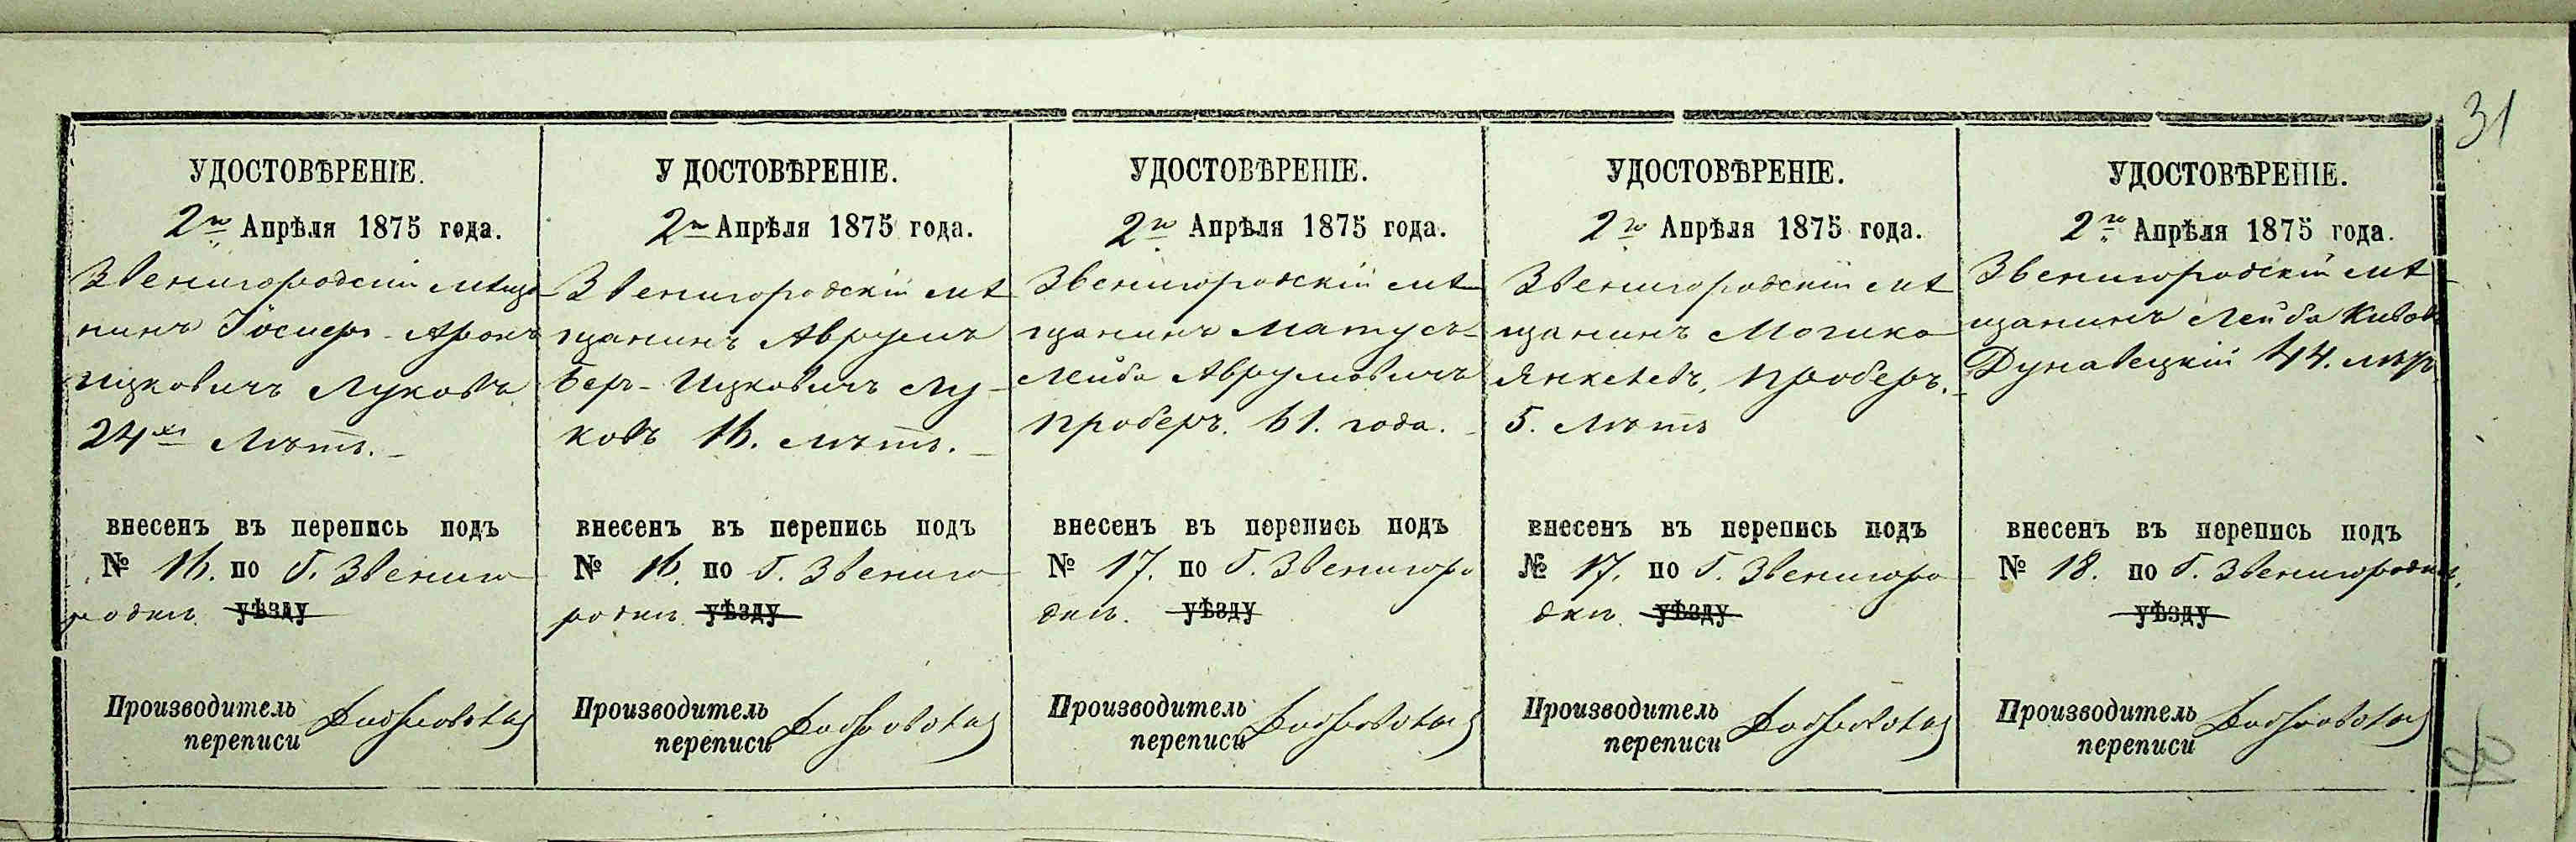 31
УДОСТОВѢРЕНІЕ.
2го Апрѣля 1875 года.
Звенигородскій мѣща
нинъ Іосиер-Аронъ
Ицковичъ Луковъ
24хъ Лѣтъ.
внесенъ въ перепись подъ
№ 16. по Г. Звениго
родкѣ уѣзду
Производитель
переписи
У ДОСТОВѢРЕНІЕ.
2го Апрѣля 1875 года.
Звенигородскій мѣ
щанинъ Аврумъ
Беръ-Ицковичъ Лу-
ковъ 16. лѣтъ.
внесенъ въ перепись подъ
№ 16. по Г. Звениго
родкѣ уѣзду
Производитель
переписи
УДОСТОВѢРЕНІЕ.
2го Апрѣля 1875 года.
Звенигородскій мѣ
щанинъ Матусъ-
Лейба Аврумовичъ
Проберъ. 61. года.
внесенъ въ перепись подъ
№ 17. по Г. Звенигоро
дкѣ. уѣзду
Производитель
переписи
УДОСТОВѢРЕНІЕ.
2го Апрѣля 1875 года.
Звенигородскій мѣ
щанинъ Мошко
Янкелевъ, Проберъ.
5. Лѣтъ
внесенъ въ перепись подъ
№ 17. по Г. Звенигоро
дкѣ. уѣзду
Производитель
переписи
УДОСТОВѢРЕНІЕ.
2го Апрѣля 1875 года.
Звенигородскій мѣ
щанинъ Лейба Кивов
Дунавецкій 44. лѣтъ
внесенъ въ перепись подъ
№ 18. по Г. Звенигородкѣ.
уѣзду
Производитель
переписи